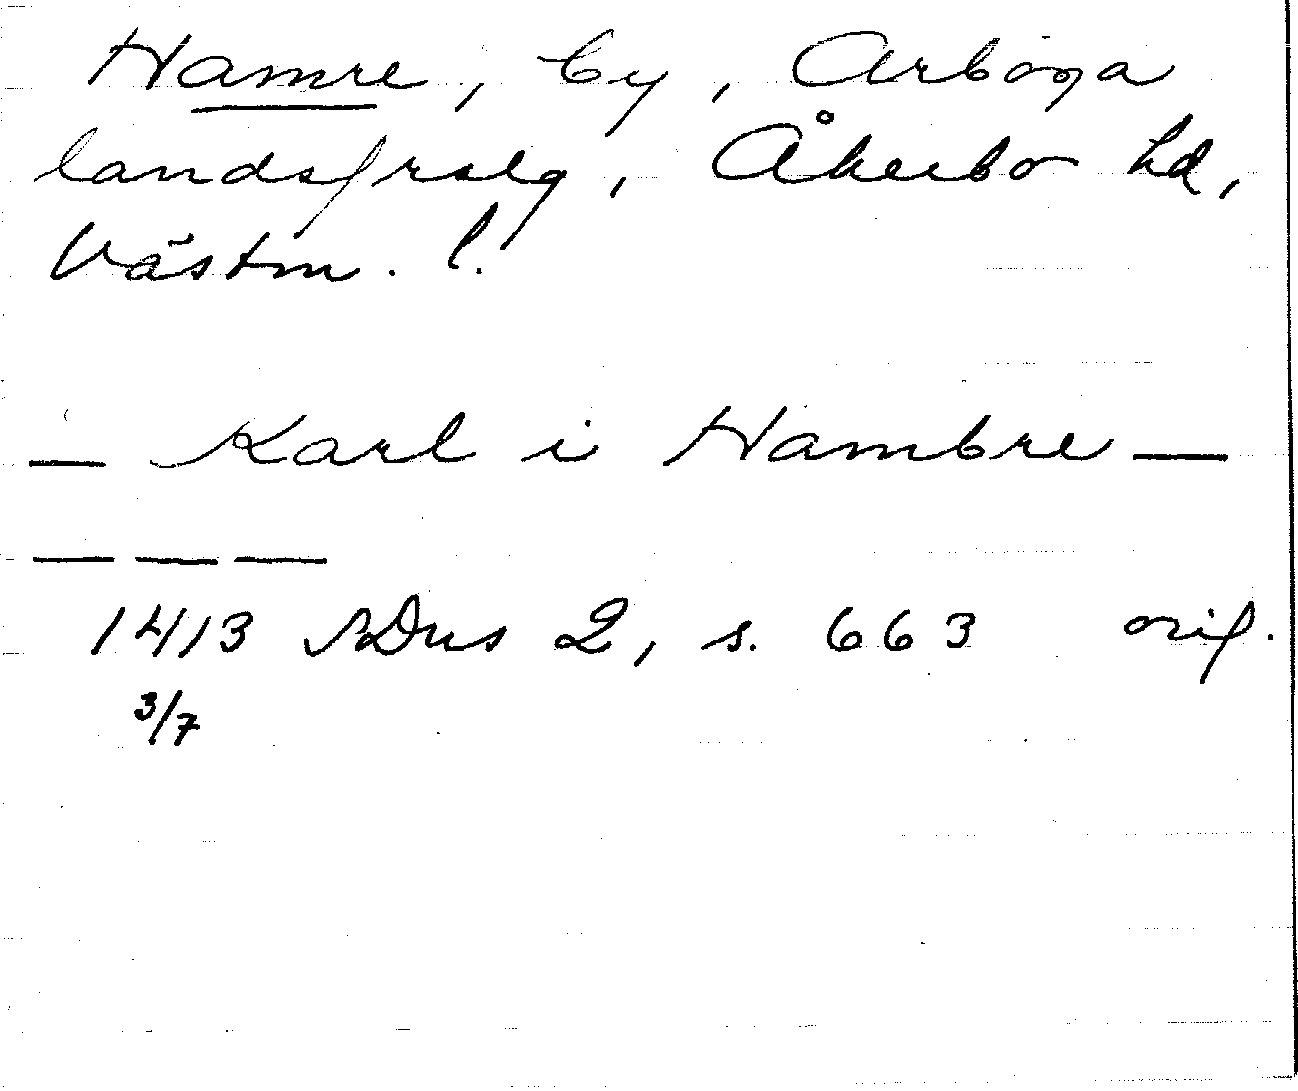 Hamre, by, Arboga
landsförslg, Åkerbo hd,
Västm. l.
— Karl i Hambre —
— — —
1413 SDns 2, s. 663 orig.
3/7